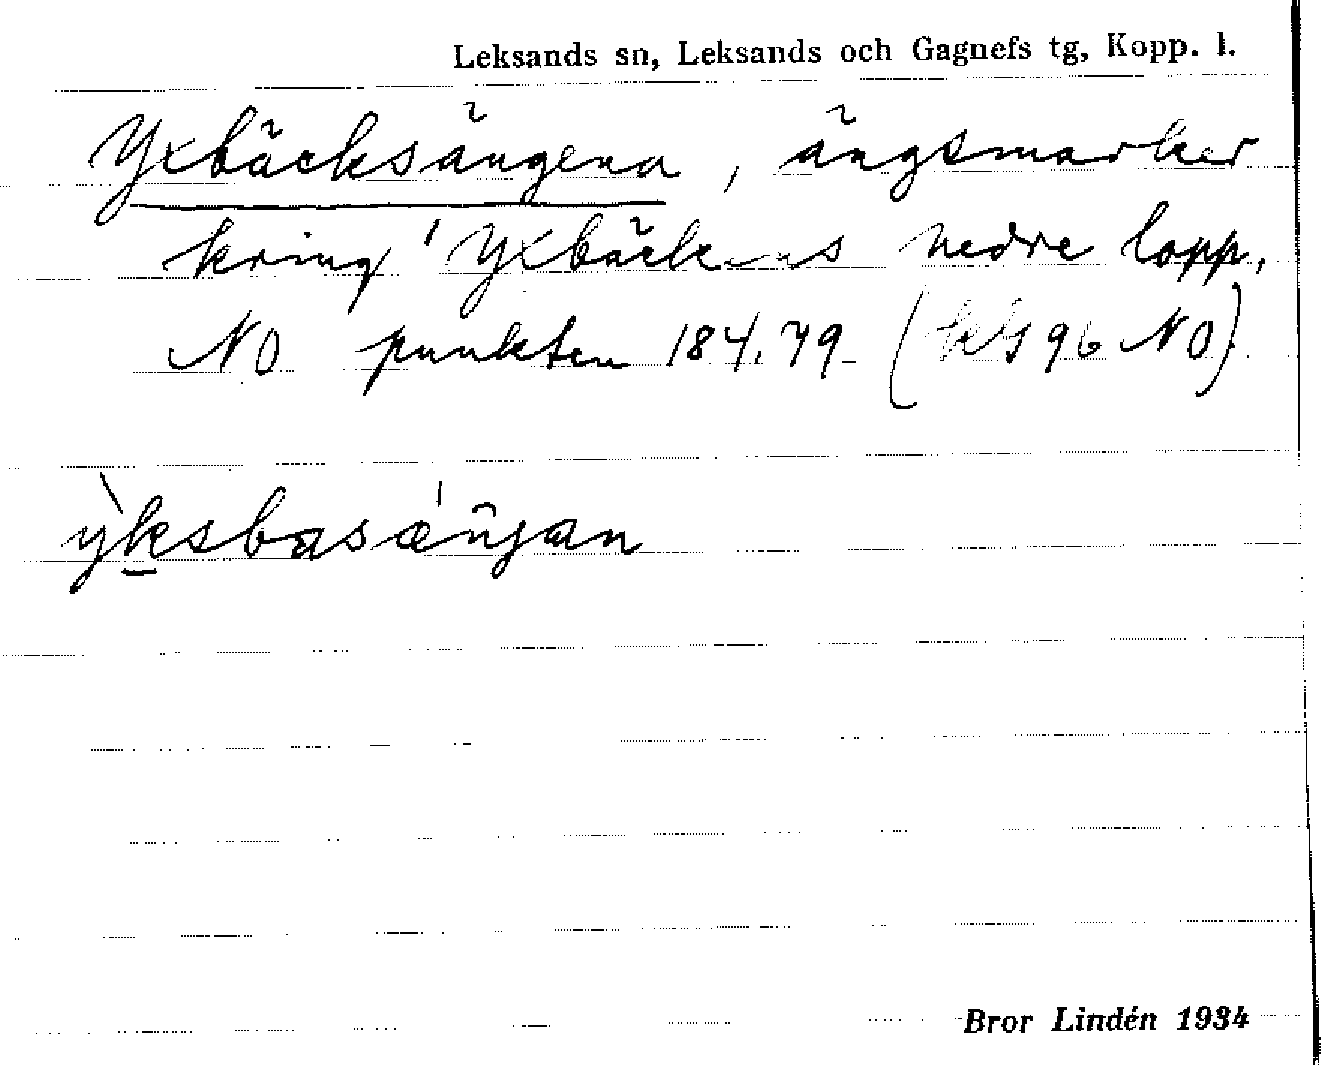 Leksands sn, Leksands och Gagnefs tg, Kopp. l.
Yxbäcksängena, ängsmarker
kring Yxbäckens nedre lopp.
NO punkten 184.79 (kbl 96 NO).
ỳksbasæ̀ŋjan
Bror Lindén 1934